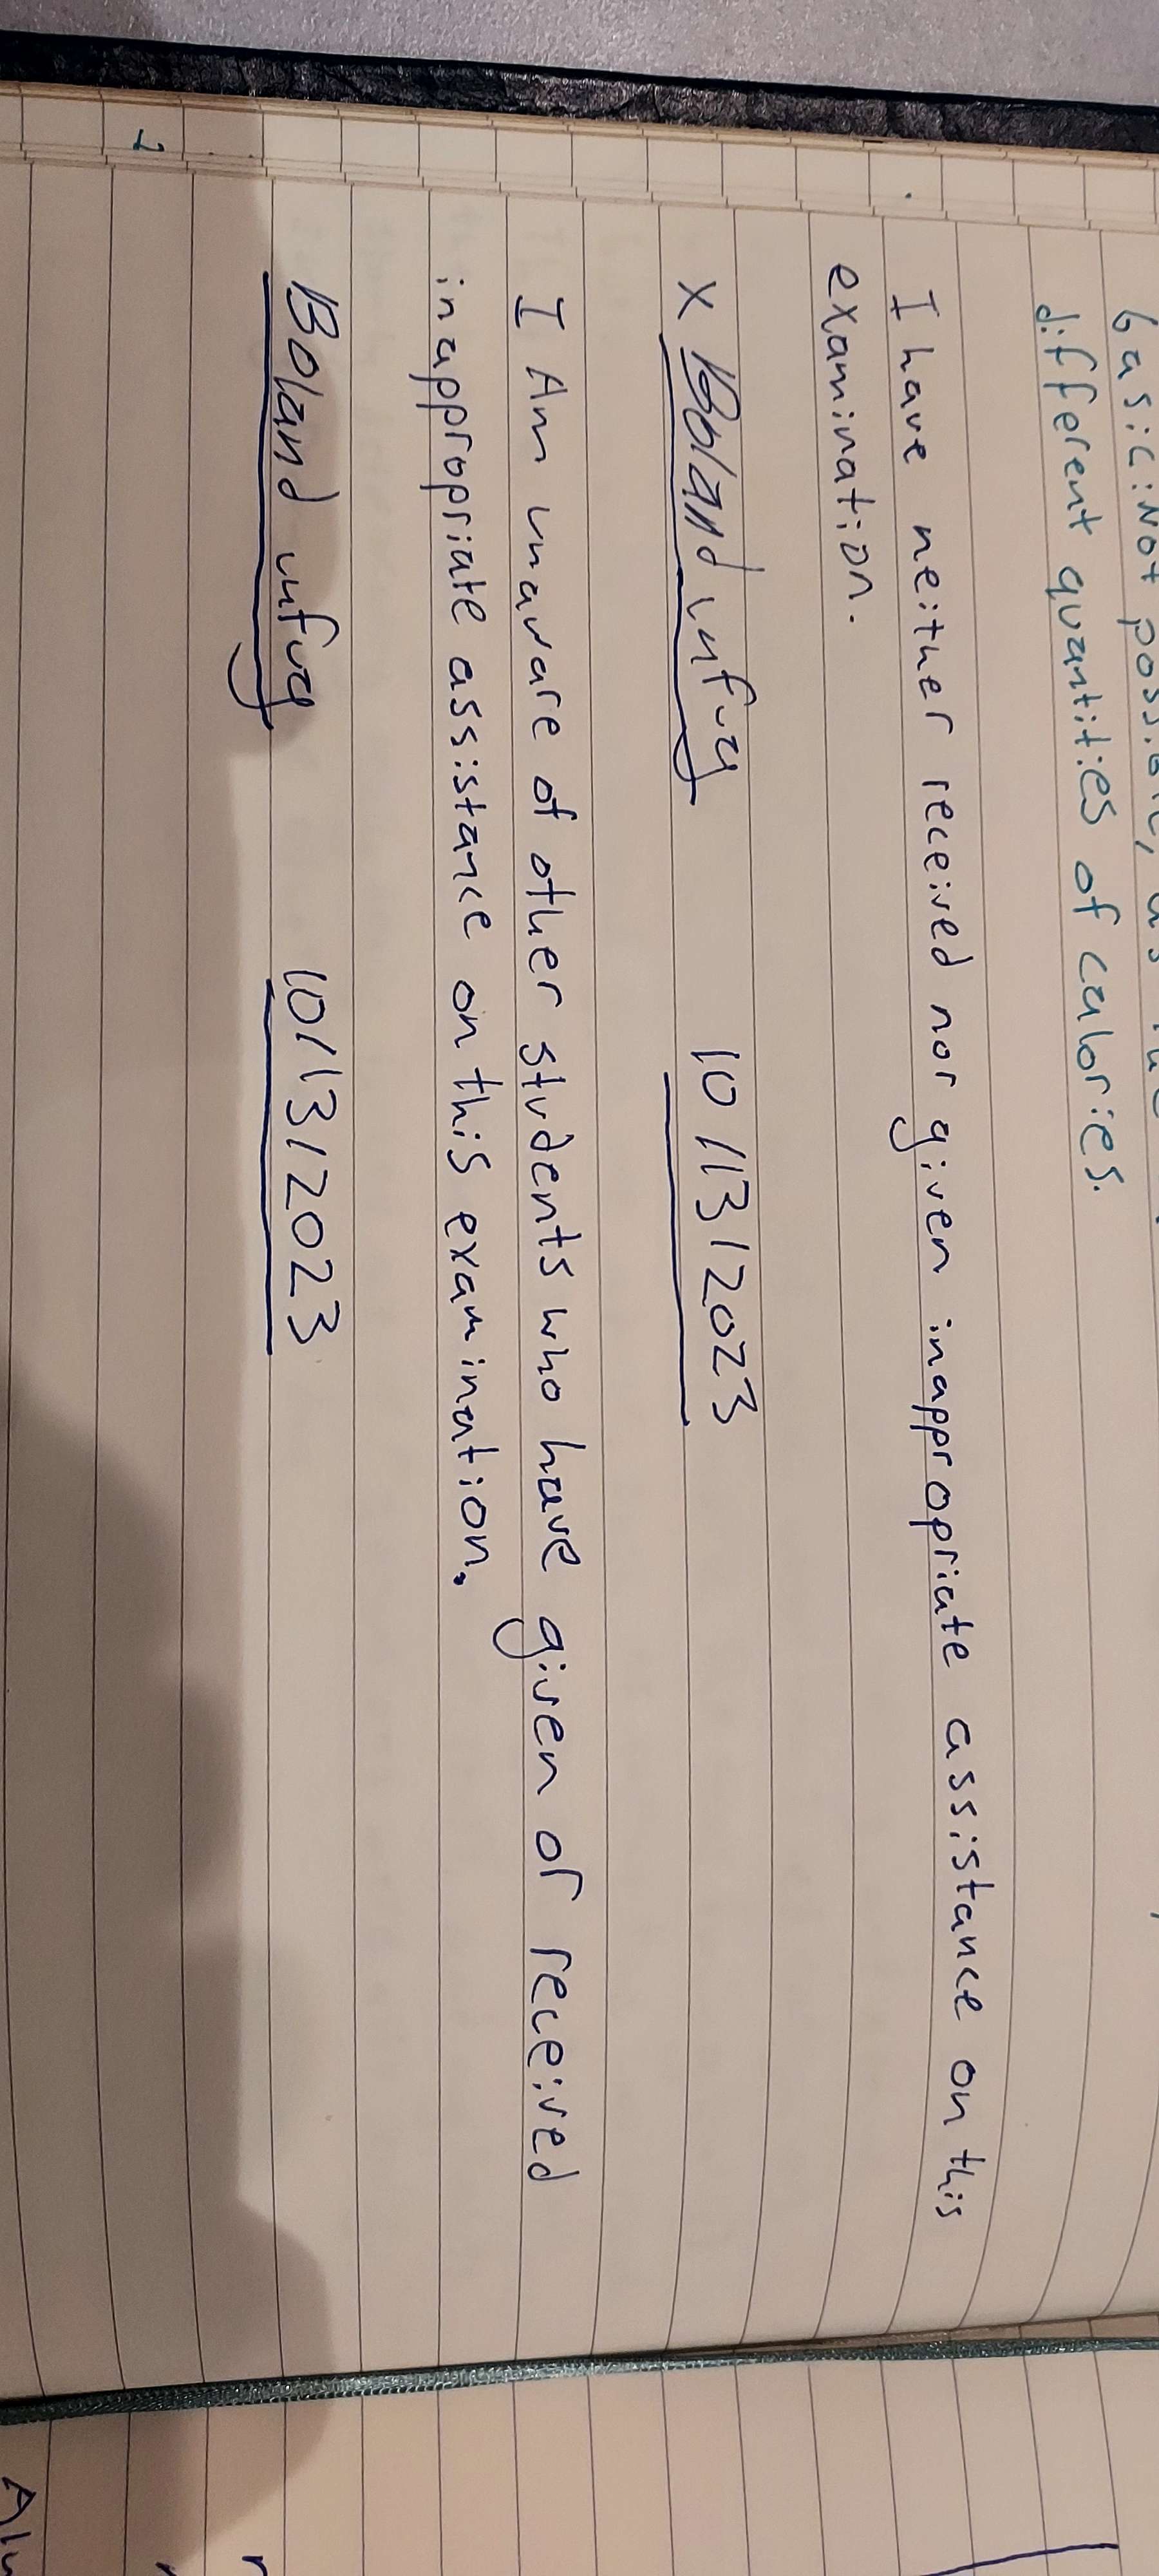 different quantities of calories.
I have neither received nor given inappropriate assistance on this
examination.
X Boland
10/13/2023
I Am unaware of other students who have given or received
inappropriate assistance on this examination.
Boland
10/13/2023